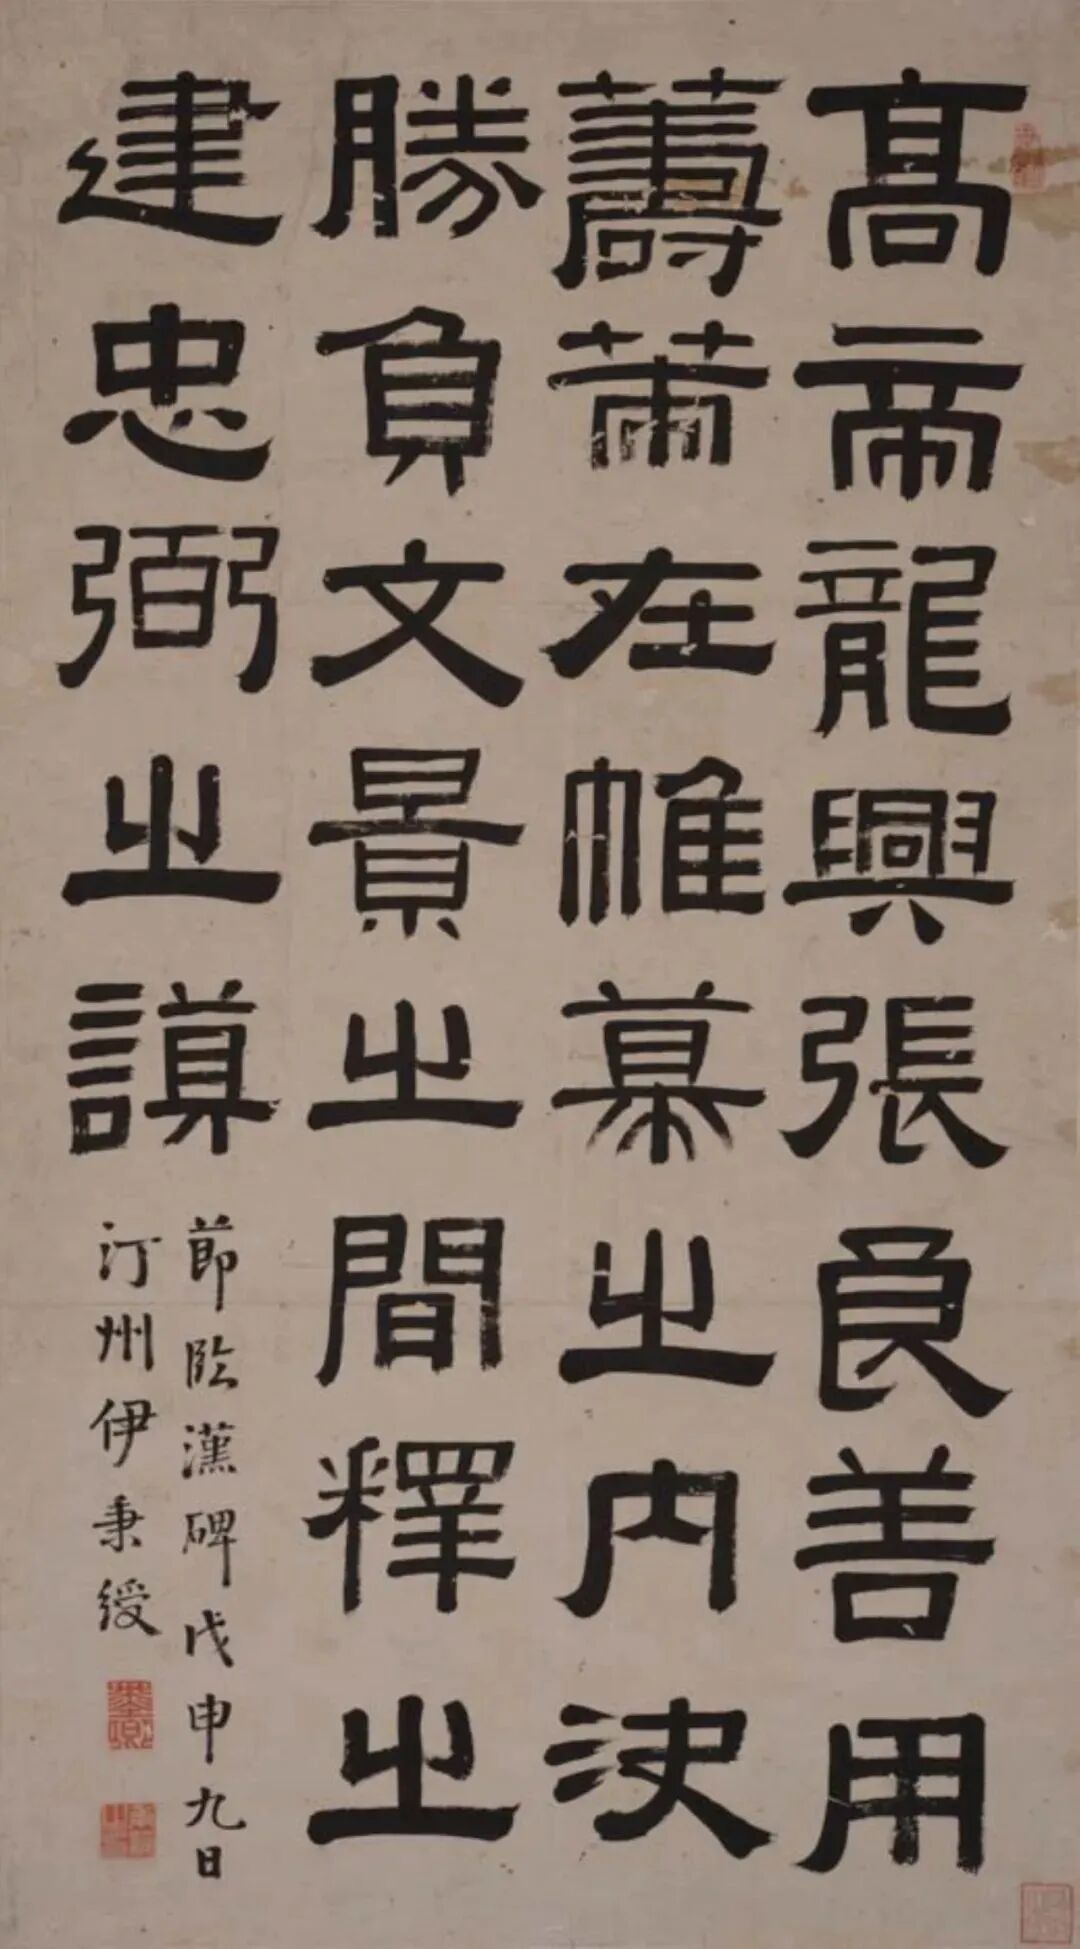 髙帝龍興張良善用
薵茦在帷幕之内決
勝負文景之間釋之
建忠弼之謨
節臨漢碑戊申九日
汀州伊秉綬